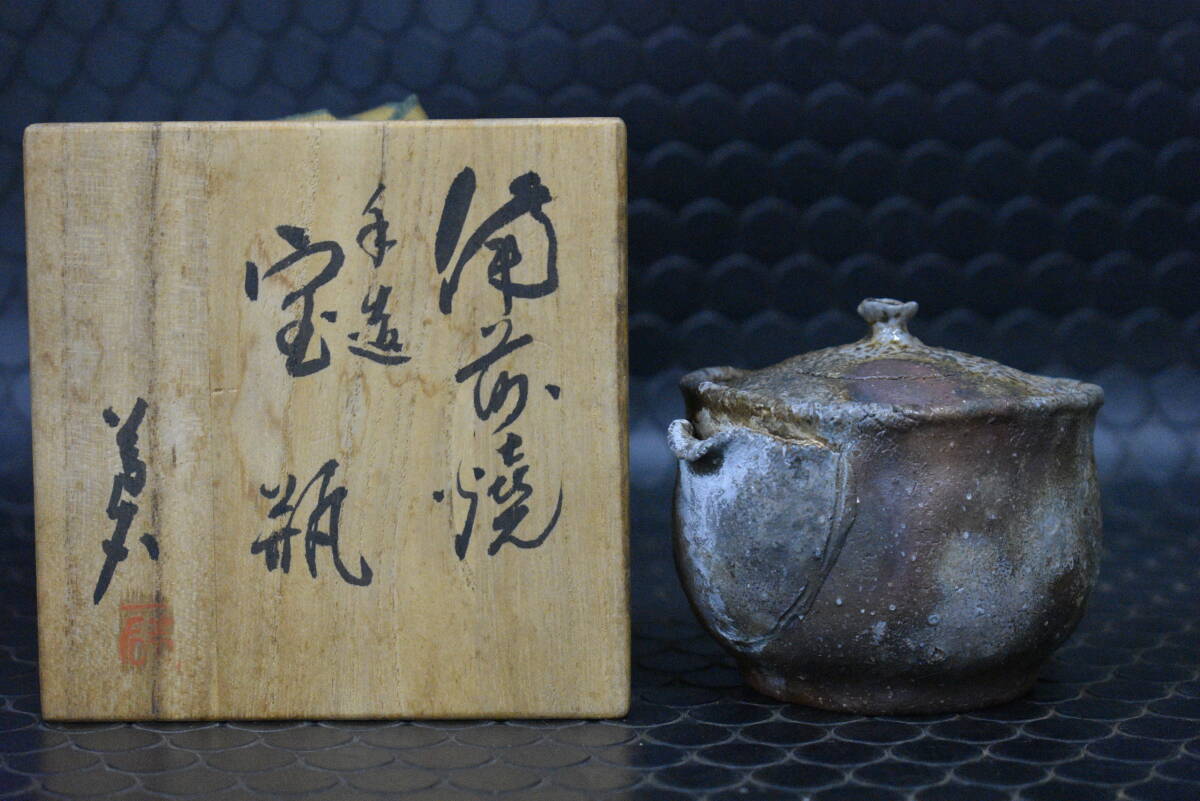 備前焼
手造
宝瓶